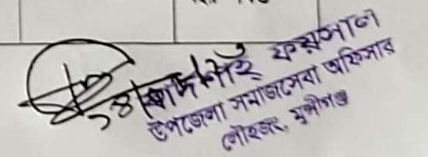 ফয়সাল
উপজেলা সমাজসেবা অফিসার
লৌহজং, মুন্সীগঞ্জ